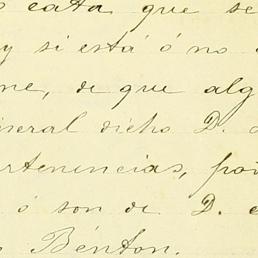 cata, que se
y si está ó no
de que alg
neral dicho D.
rtenencias, po
ó son de D.
Bénton.